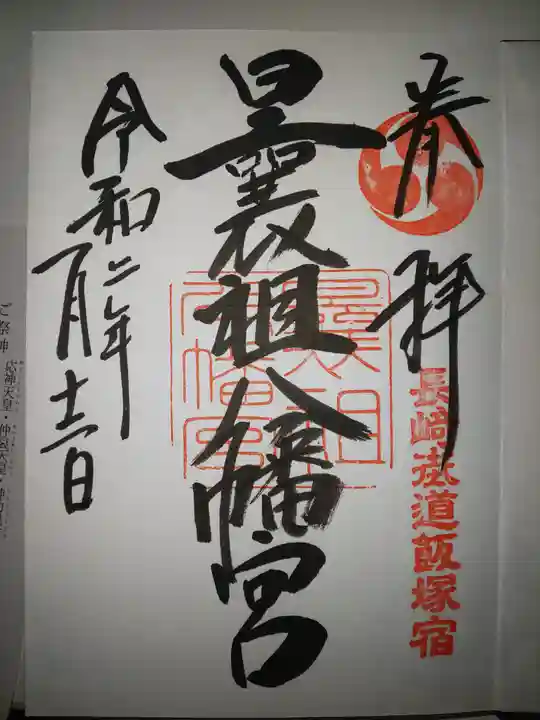 奉拝
長崎街道飯塚宿
曩祖八幡宮
曩祖八幡宮
令和二年
一月十一日
ご祭神 応神天皇・仲哀天皇・神功皇